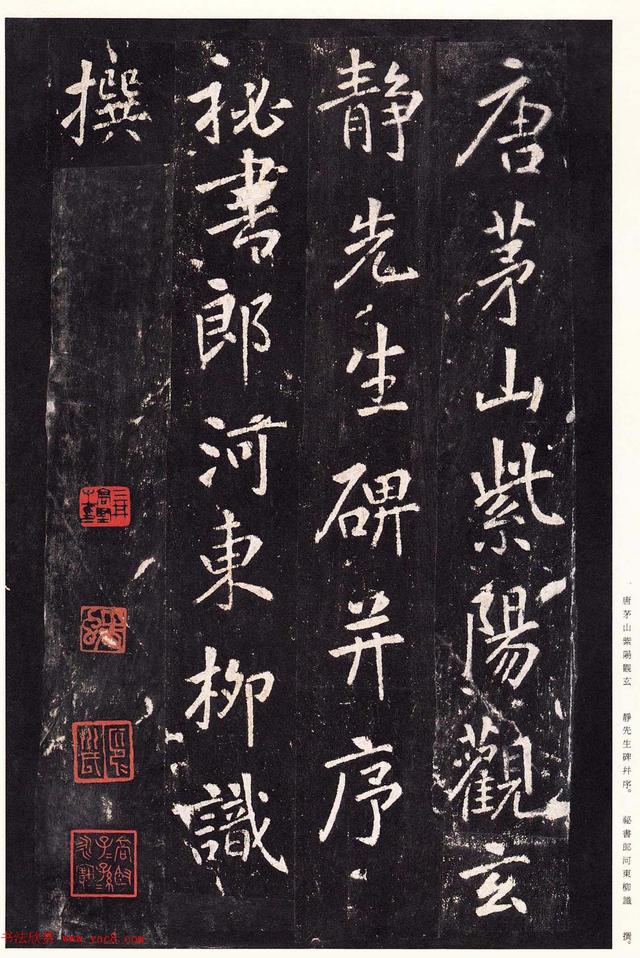 唐茅山紫陽觀玄
靜先生碑并序
祕書郎河東柳識
撰
一 唐茅山紫陽觀玄 靜先生碑并序。 祕書郎河東柳識 撰。
书法欣赏 www.yac8.com